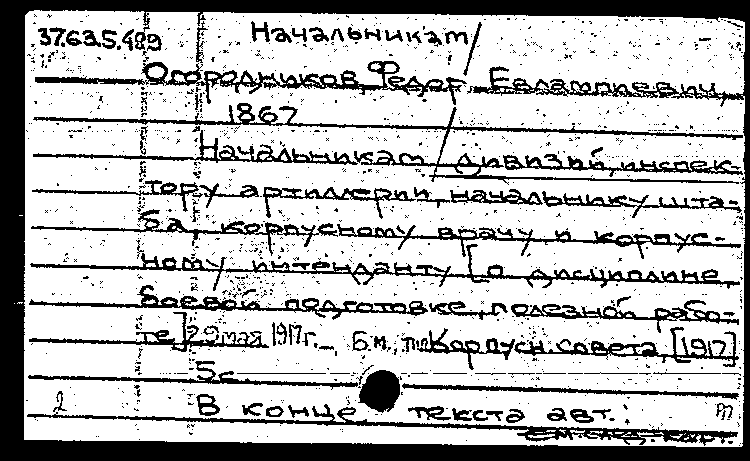 37.63.5.489
Начальникам
Огородников, Федор Евлампиевич,
1867
Начальникам дивизий, инспек-
тору артиллерии, начальнику шта-
ба, корпусному врачу и корпус-
ному интенданту [о дисциплине,
боевой подготовке, полезной рабо-
те,] 29 мая 1917 г. –, Б.м., тип. Корпусн. совета, [1917]
5 с.
2 В конце текста авт.:
См. след. карт.